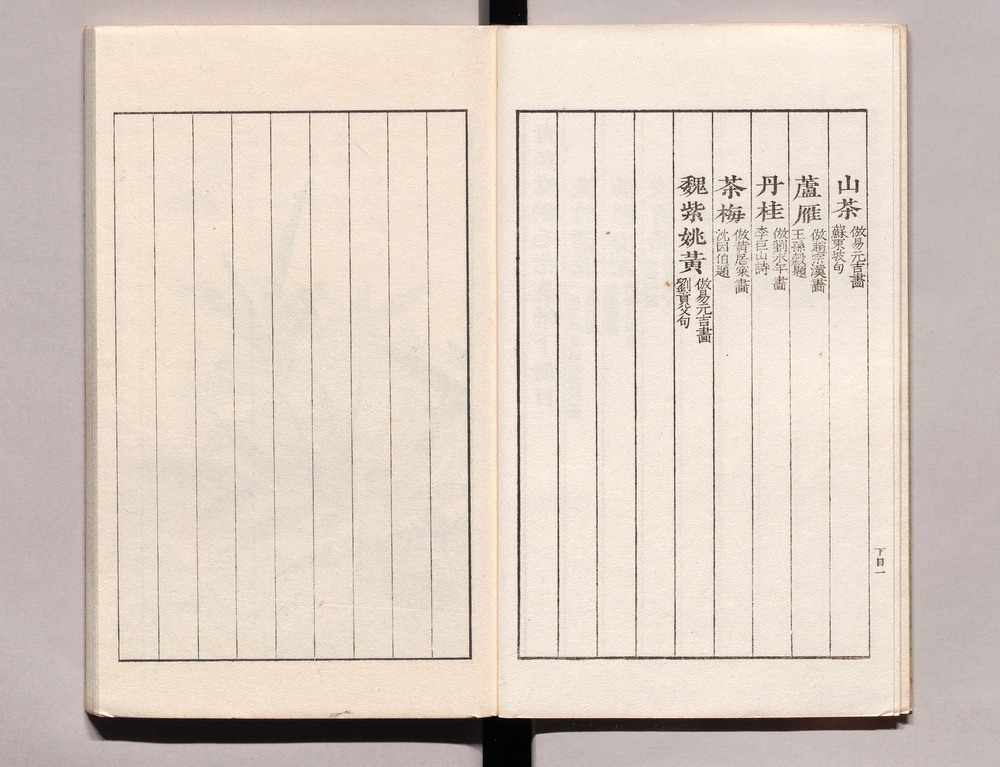 山茶 倣易元吉畵 蘇東坡句
蘆雁 倣趙宗漢畵 王孫穀題
丹桂 倣劉永年畵 李巨山詩
茶梅 倣黃居寀畵 沈因伯題
魏紫姚黃 倣易元吉畵 劉貢父句
下目一